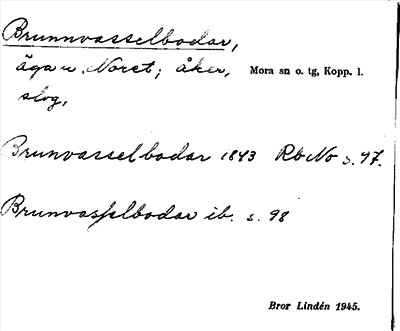 Brunnvasselbodar,
äga u. Noret; åker, Mora sn o. tg, Kopp. l.
slog,
Brunvasselbodar 1843 Rb No s. 97.
Brunvasselbodar ib. s. 98
Bror Lindén 1945.